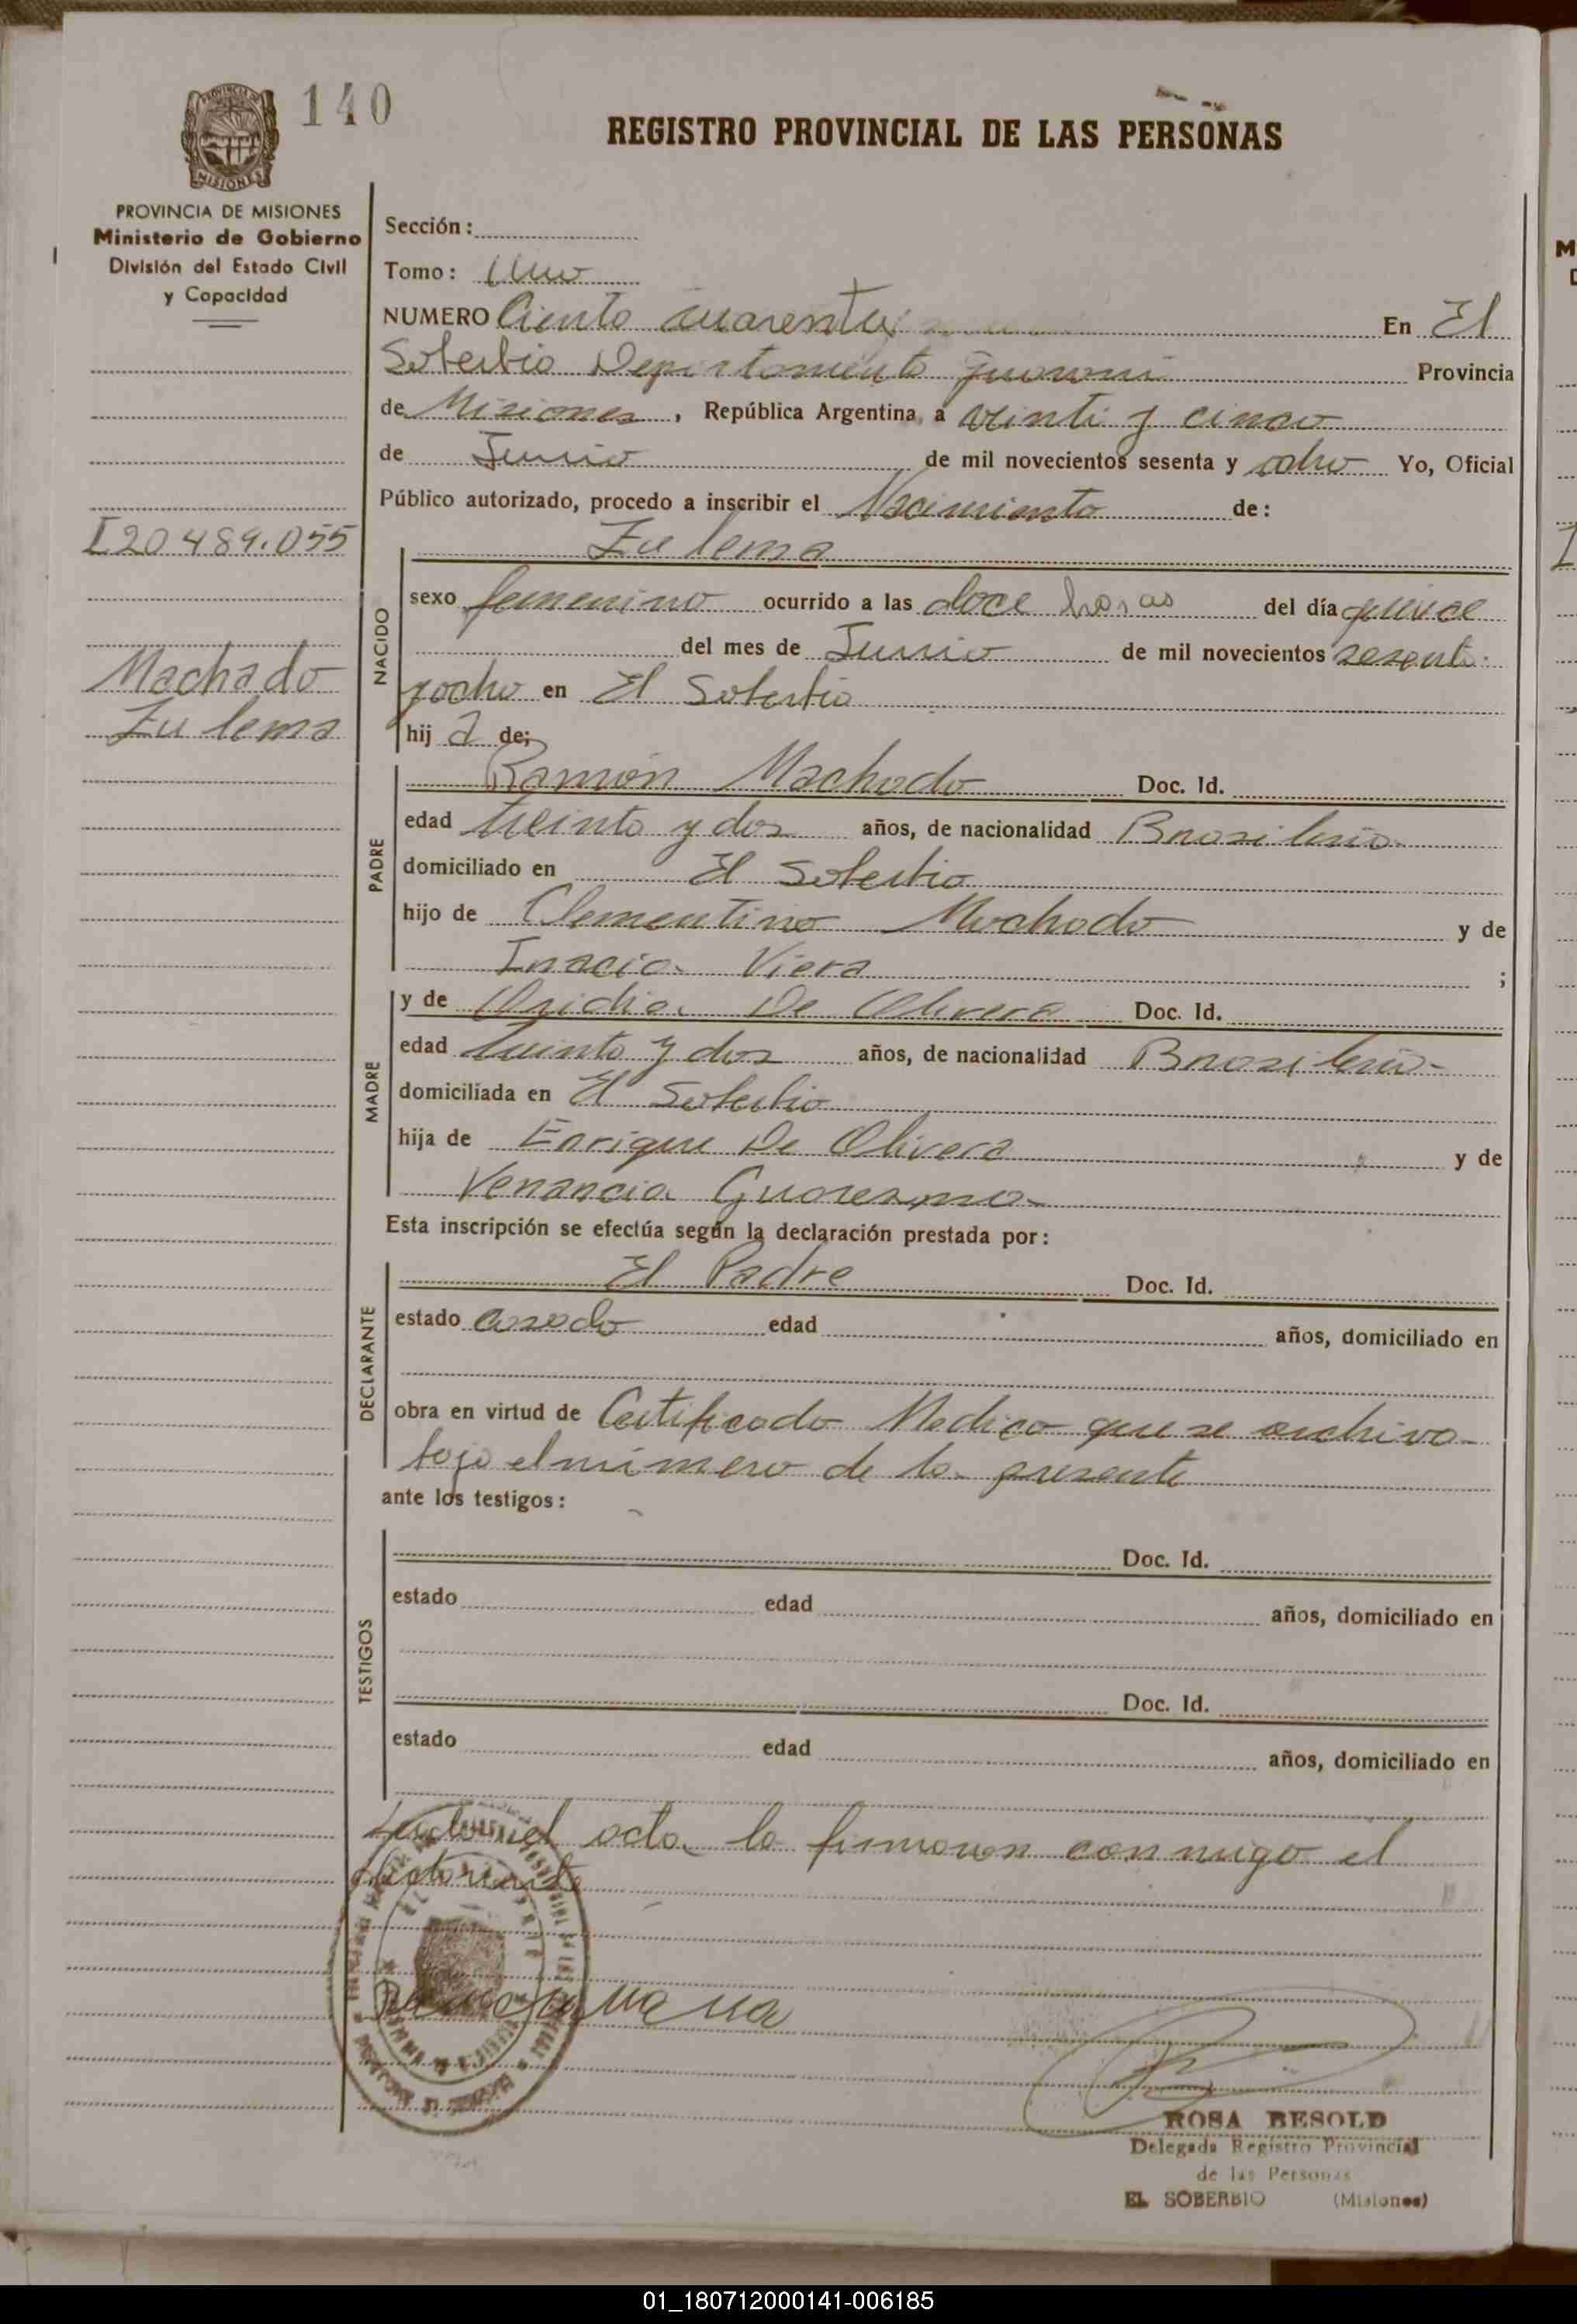 140
REGISTRO PROVINCIAL DE LAS PERSONAS
PROVINCIA DE MISIONES
Ministerio de Gobierno
División del Estado Civil
y Capacidad
I 20 489.055
Machado
Zulema
Sección:
Tomo: Uno
NUMERO Ciento cuarenta En El
Soberbio Departamento Guarani Provincia
de Misiones, República Argentina, a veinti y cinco
de Junio de mil novecientos sesenta y ocho Yo, Oficial
Público autorizado, procedo a inscribir el Nacimiento de:
Zulema
NACIDO
sexo femenino ocurrido a las doce horas del día quince
del mes de Junio de mil novecientos sesenta
y ocho en El Soberbio
hij a de;
PADRE
Ramón Machado Doc. Id.
edad treinta y dos años, de nacionalidad Brasileria
domiciliado en El Soberbio
hijo de Clementino Machado y de
Inacia Viera ;
MADRE
y de De Olivera Doc. Id.
edad treinta y dos años, de nacionalidad Brasileria
domiciliada en El Soberbio
hija de Enrique De Olivera y de
Venancia
Esta inscripción se efectúa según la declaración prestada por:
DECLARANTE
El Padre Doc. Id.
estado casado edad años, domiciliado en
obra en virtud de Certificado Medico que se archiva
bajo el número de la presente
ante los testigos:
TESTIGOS
Doc. Id.
estado edad años, domiciliado en
Doc. Id.
estado edad años, domiciliado en
el acta la firmaron conmigo el
ROSA BESOLD
Delegada Registro Provincial
de las Personas
EL SOBERBIO (Misiones)
01_180712000141-006185